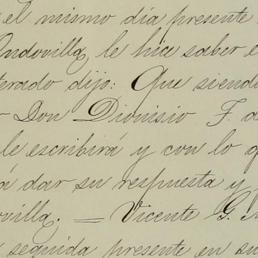 el mismo dia presente
Andovilla, le hice saber e
terado dijo: Que siend
Don Dionisio F. d
le escribirá y con lo q
á dar su respuesta y
ovilla. — Vicente G.
seguida presente en su